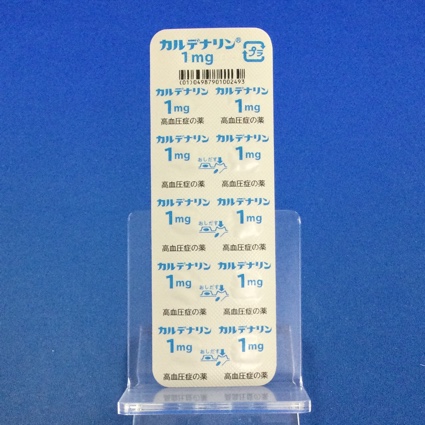 カルデナリン®
1mg
プラ
(01)04987901002493
カルデナリン カルデナリン
1mg 1mg
高血圧症の薬 高血圧症の薬
カルデナリン カルデナリン
1mg おしだす 1mg
高血圧症の薬 高血圧症の薬
カルデナリン カルデナリン
1mg おしだす 1mg
高血圧症の薬 高血圧症の薬
カルデナリン カルデナリン
1mg おしだす 1mg
高血圧症の薬 高血圧症の薬
カルデナリン カルデナリン
1mg おしだす 1mg
高血圧症の薬 高血圧症の薬